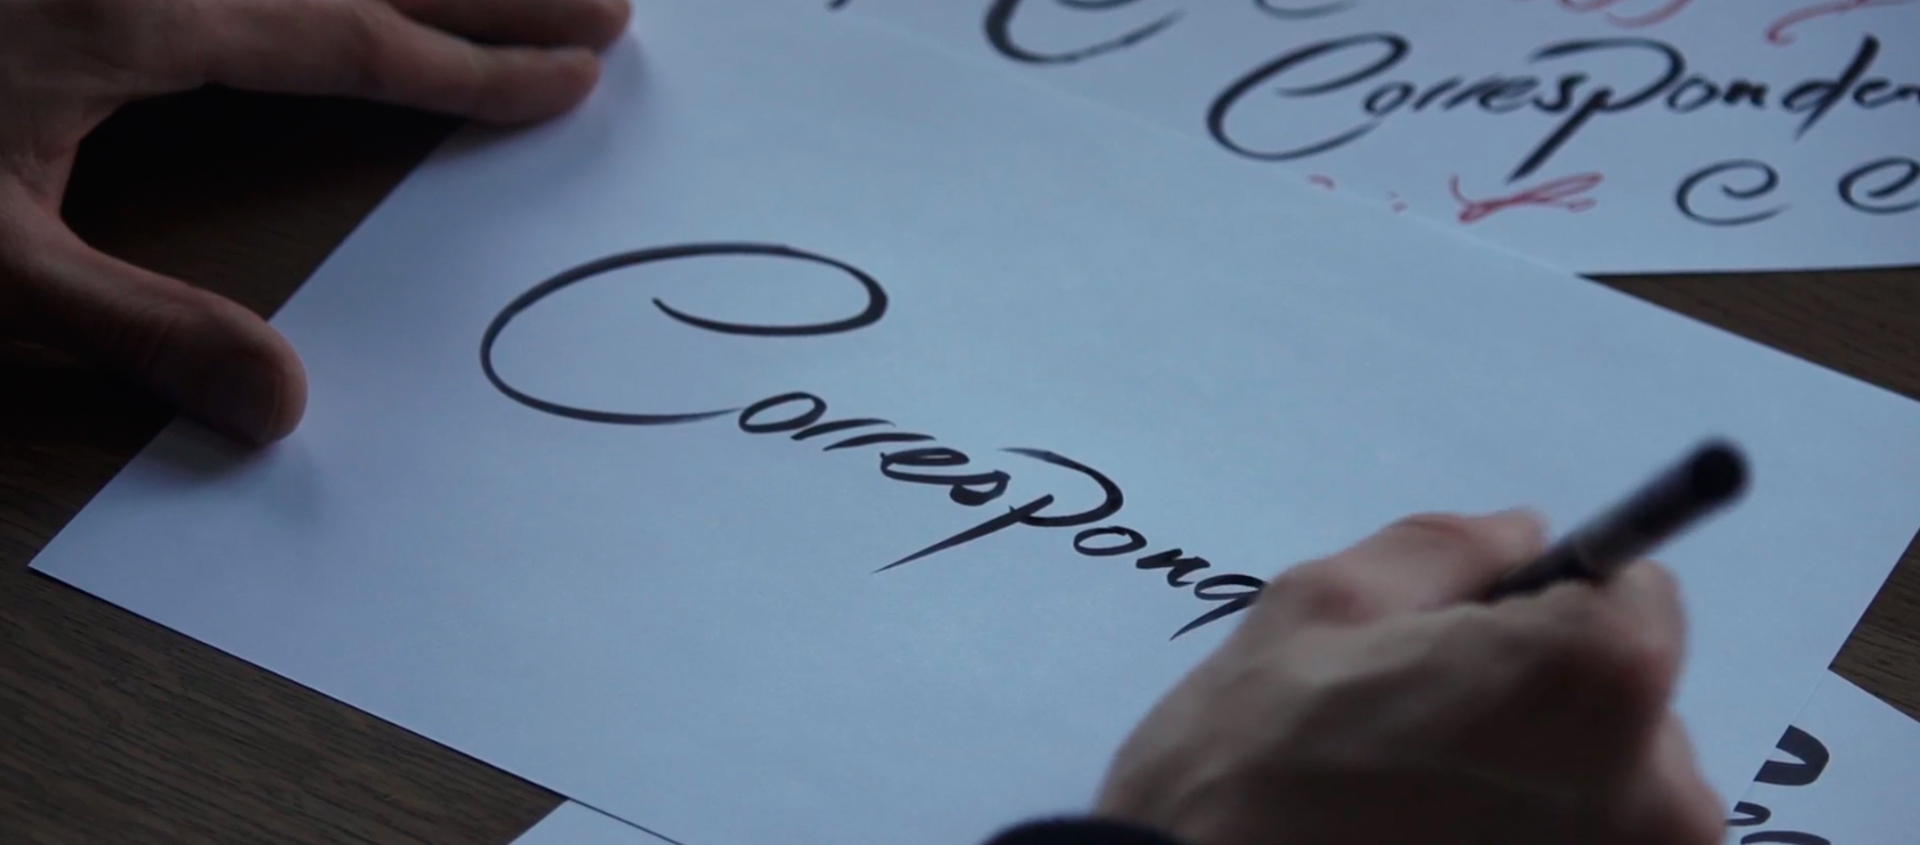 Corresponden
C C
Correspond